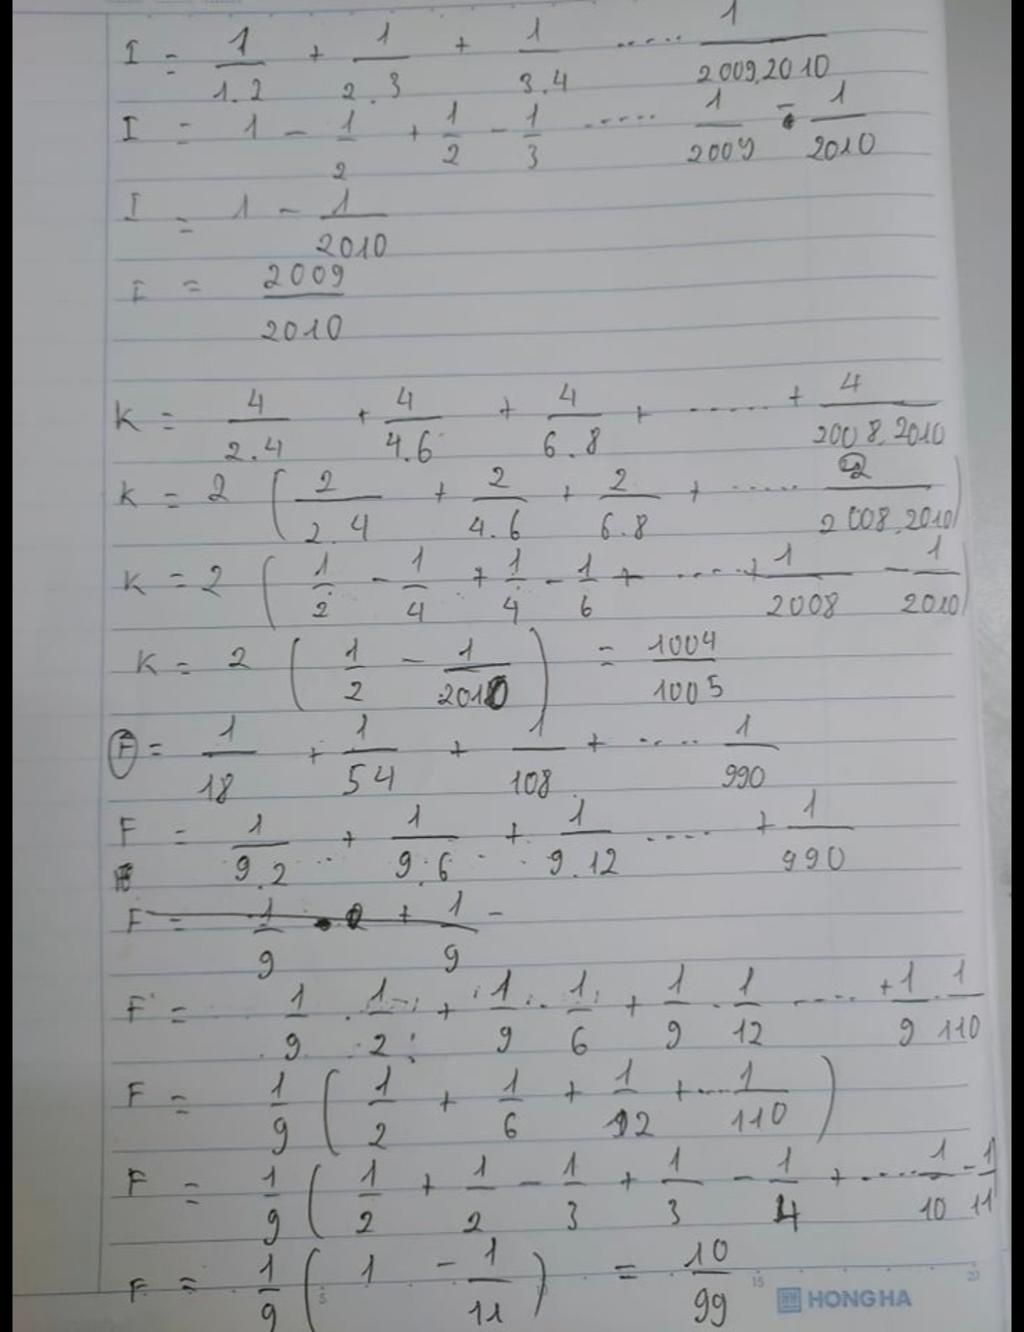 I = 1/1.2 + 1/2.3 + 1/3.4 ..... 1/2009.2010
I = 1 - 1/2 + 1/2 - 1/3 ..... 1/2009 - 1/2010
I = 1 - 1/2010
I = 2009/2010
K = 4/2.4 + 4/4.6 + 4/6.8 + ..... + 4/2008.2010
K = 2 (2/2.4 + 2/4.6 + 2/6.8 + ..... 2/2008.2010)
K = 2 (1/2 - 1/4 + 1/4 - 1/6 + ..... + 1/2008 - 1/2010)
K = 2 (1/2 - 1/2010) = 1004/1005
F = 1/18 + 1/54 + 1/108 + ..... 1/990
F = 1/9.2 + 1/9.6 + 1/9.12 ..... + 1/990
F = 1/9 + 1/9 -
F = 1/9 . 1/2 + 1/9 . 1/6 + 1/9 . 1/12 ..... + 1/9 . 1/110
F = 1/9 (1/2 + 1/6 + 1/12 + ... 1/110)
F = 1/9 (1/2 + 1/2 - 1/3 + 1/3 - 1/4 + ..... 1/10 - 1/11)
F = 1/9 (1 - 1/11) = 10/99
5 15 20
HONG HA